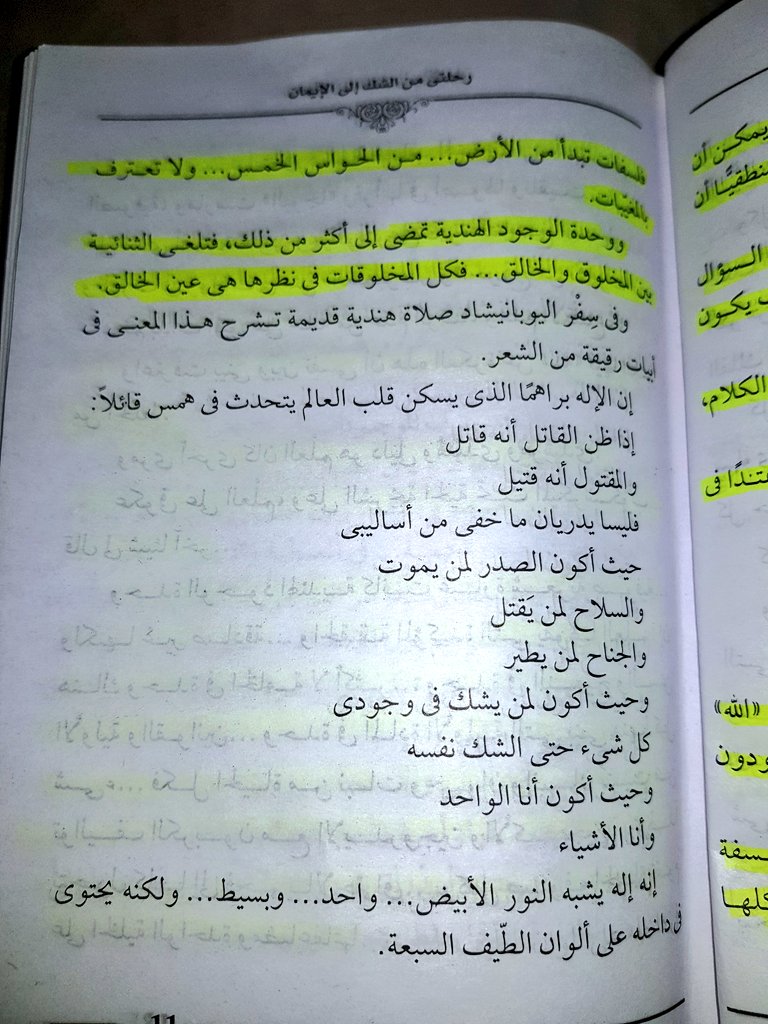 رحلتى من الشك إلى الإيمان
فلسفات تبدأ من الأرض... من الحواس الخمس... ولا تعترف
بالمغيّبات.
ووحدة الوجود الهندية تمضى إلى أكثر من ذلك، فتلغى الثنائية
بين المخلوق والخالق... فكل المخلوقات فى نظرها هى عين الخالق.
وفى سِفْر اليوبانيشاد صلاة هندية قديمة تشرح هذا المعنى فى
أبيات رقيقة من الشعر.
إن الإله براهمًا الذى يسكن قلب العالم يتحدث فى همس قائلاً:
إذا ظن القاتل أنه قاتل
والمقتول أنه قتيل
فليسا يدريان ما خفى من أساليبى
حيث أكون الصدر لمن يموت
والسلاح لمن يَقتل
والجناح لمن يطير
وحيث أكون لمن يشك فى وجودى
كل شىء حتى الشك نفسه
وحيث أكون أنا الواحد
وأنا الأشياء
إنه إله يشبه النور الأبيض... واحد... وبسيط... ولكنه يحتوى
فى داخله على ألوان الطّيف السبعة.
11
يمكن أن
السؤال
يكون
الكلام،
فى
«الله»